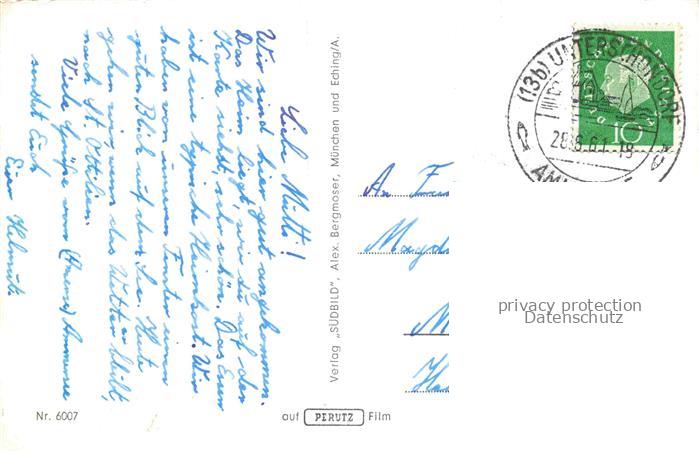 Liebe Mutti!
Wir sind hier gut angekommen.
Das Heim liegt, wie du auf der
Karte siehst, sehr schön. Das Essen
ist eine typische Heimkost. Wir
haben von unserem Fenster einen
guten Blick auf den See. Heute
gehen wir, wenn das Wetter so bleibt,
nach St. Ottilien.
Viele Grüße vom Ammersee
sendet Euch
Euer Helmut.
Verlag „SÜDBILD", Alex. Bergmoser, München und Eching/A.
Nr. 6007
auf PERUTZ Film
An
M
(13b) UNTERSCHONDORF
28.8.61-18
AM
10
privacy protection
Datenschutz